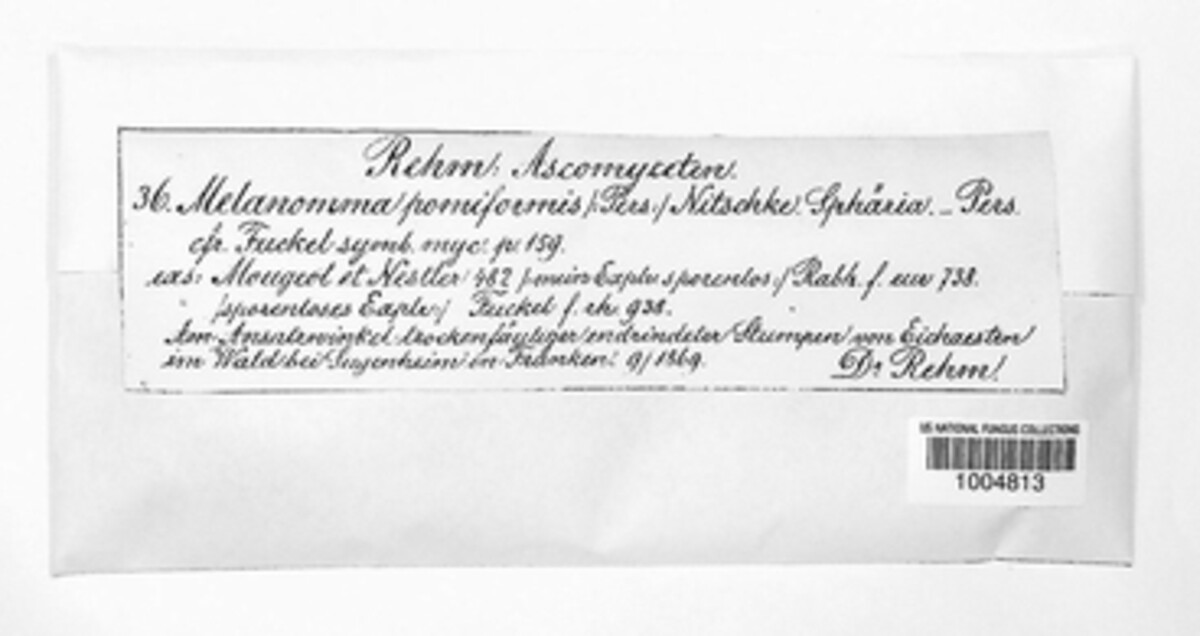 Rehm: Ascomyceten.
36. Melanomma pomiformis /: Pers :/ Nitschke. Sphäria. – Pers.
cfr. Fuckel symb. myc. p. 159.
exs: Mougeot et Nestler 482 /: mein Explr sporenlos :/ Rabh. f. eur 738.
/ sporenloses Explr :/ Fuckel f. rh. 938.
Am Ansatzwinkel trockenfäuliger entrindeter Stumpen von Eichaesten
im Wald bei Sugenheim in Franken. 9/1869. Dr Rehm.
US NATIONAL FUNGUS COLLECTIONS
1004813